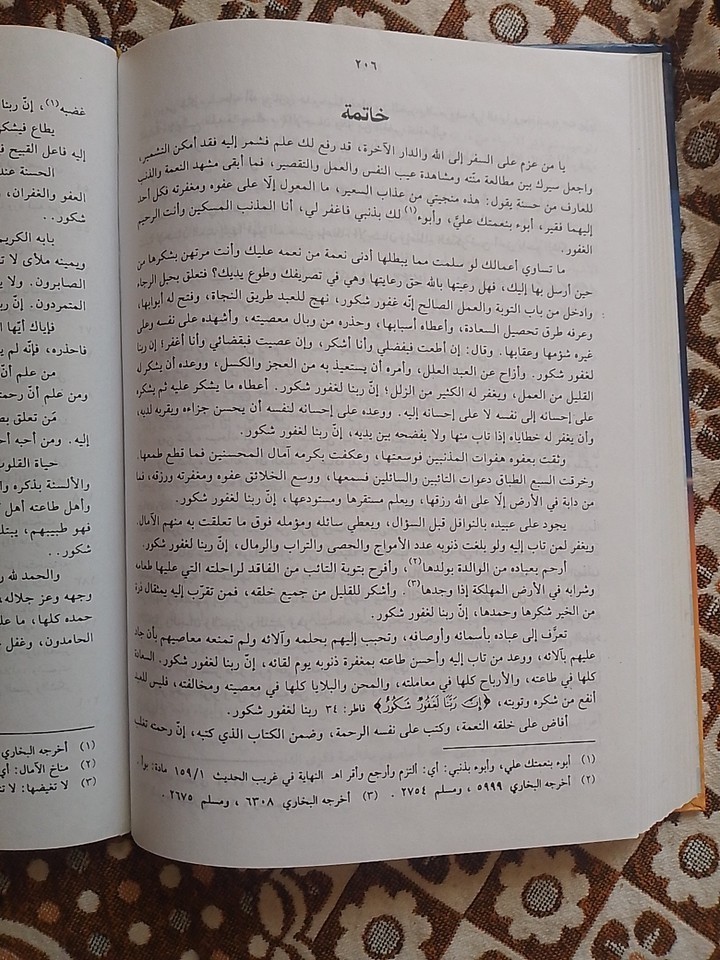 ٢٠٦
خاتمة
يا من عزم على السفر إلى الله والدار الآخرة، قد رفع لك علم فشمر إليه فقد أمكن التشمير،
واجعل سيرك بين مطالعة منّته ومشاهدة عيب النفس والعمل والتقصير، فما أبقى مشهد النعمة والذنب
للعارف من حسنة يقول: هذه منجيتي من عذاب السعير، ما المعول إلّا على عفوه ومغفرته فكل أحد
إليهما فقير، أبوء بنعمتك عليَّ، وأبوء(١) لك بذنبي فاغفر لي، أنا المذنب المسكين وأنت الرحيم
الغفور.
ما تساوي أعمالك لو سلمت مما يبطلها أدنى نعمة من نعمه عليك وأنت مرتهن بشكرها من
حين أرسل بها إليك، فهل رعيتها بالله حق رعايتها وهي في تصريفك وطوع يديك؟ فتعلق بحبل الرجاء
وادخل من باب التوبة والعمل الصالح إنّه غفور شكور، نهج للعبد طريق النجاة، وفتح له أبوابها،
وعرفه طرق تحصيل السعادة، وأعطاه أسبابها، وحذره من وبال معصيته، وأشهده على نفسه وعلى
غيره شؤمها وعقابها. وقال: إن أطعت فبفضلي وأنا أشكر، وإن عصيت فبقضائي وأنا أغفر؛ إن ربنا
لغفور شكور. وأزاح عن العبد العلل، وأمره أن يستعيذ به من العجز والكسل، ووعده أن يشكر له
القليل من العمل، ويغفر له الكثير من الزلل؛ إنّ ربنا لغفور شكور. أعطاه ما يشكر عليه ثم يشكره
على إحسانه إلى نفسه لا على إحسانه إليه. ووعده على إحسانه لنفسه أن يحسن جزاءه ويقربه لديه،
وأن يغفر له خطاياه إذا تاب منها ولا يفضحه بين يديه، إنّ ربنا لغفور شكور.
وثقت بعفوه هفوات المذنبين فوسعتها، وعكفت بكرمه آمال المحسنين فما قطع طمعها.
وخرقت السبع الطباق دعوات التائبين والسائلين فسمعها، ووسع الخلائق عفوه ومغفرته ورزقه، فما
من دابة في الأرض إلّا على الله رزقها، ويعلم مستقرها ومستودعها، إنّ ربنا لغفور شكور.
يجود على عبيده بالنوافل قبل السؤال، ويعطي سائله ومؤمله فوق ما تعلقت به منهم الآمال.
ويغفر لمن تاب إليه ولو بلغت ذنوبه عدد الأمواج والحصى والتراب والرمال، إنّ ربنا لغفور شكور.
أرحم بعباده من الوالدة بولدها(٢)، وأفرح بتوبة التائب من الفاقد لراحلته التي عليها طعامه
وشرابه في الأرض المهلكة إذا وجدها(٣). وأشكر للقليل من جميع خلقه، فمن تقرّب إليه بمثقال ذرة
من الخير شكرها وحمدها، إنّ ربنا لغفور شكور.
تعرّف إلى عباده بأسمائه وأوصافه، وتحبب إليهم بحلمه وآلائه ولم تمنعه معاصيهم بأن جاد
عليهم بآلائه، ووعد من تاب إليه وأحسن طاعته بمغفرة ذنوبه يوم لقائه، إنّ ربنا لغفور شكور. السعادة
كلها في طاعته، والأرباح كلها في معاملته، والمحن والبلايا كلها في معصيته ومخالفته، فليس للعبد
أنفع من شكره وتوبته، ﴿إِنَّ رَبَّنَا لَغَفُورٌ شَكُورٌ﴾ فاطر: ٣٤ ربنا لغفور شكور.
أفاض على خلقه النعمة، وكتب على نفسه الرحمة، وضمن الكتاب الذي كتبه، إنّ رحمت تغلب
(١) أبوء بنعمتك علي، وأبوء بذنبي: أي: ألتزم وأرجع وأقر اهـ النهاية في غريب الحديث ١٥٩/١ مادة: بوأ.
(٢) أخرجه البخاري ٥٩٩٩، ومسلم ٢٧٥٤. (٣) أخرجه البخاري ٦٣٠٨، ومسلم ٢٦٧٥.
غضبه(١)، إنّ ربنا
يطاع فيشكر
إليه فاعل القبيح
الحسنة عند
العفو والغفران،
شكور..
بابه الكريم
ويمينه ملأى لا
الصابرون. ولا
المتمردون. إنّ
فإياك أيّها
فاحذره، فإنّه لم
من علم أنّ
ومن علم أنّ
مَن تعلق
إليه. ومن أحبه
حياة القلوب
والألسنة بذكره
وأهل طاعته أهل
فهو طبيبهم،
شكور..
والحمد لله
وجهه وعز جلاله،
حمده كلها، ما
الحامدون، وغفل
(١) أخرجه البخاري
(٢) مناخ الآمال: أي
(٣) لا تغيضها: لا